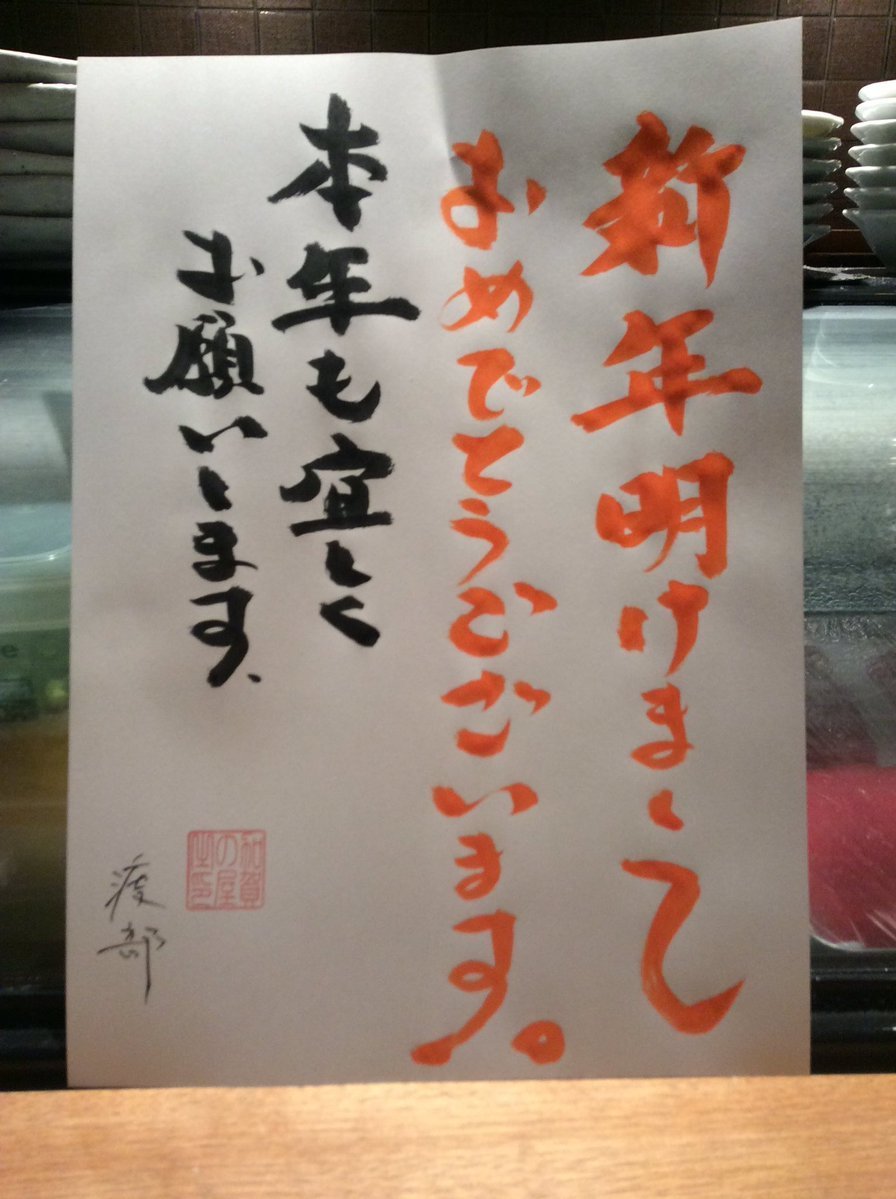 新年明けまして
おめでとうございます。
本年も宜しく
お願いします、
和賀
の屋
之印
渡部